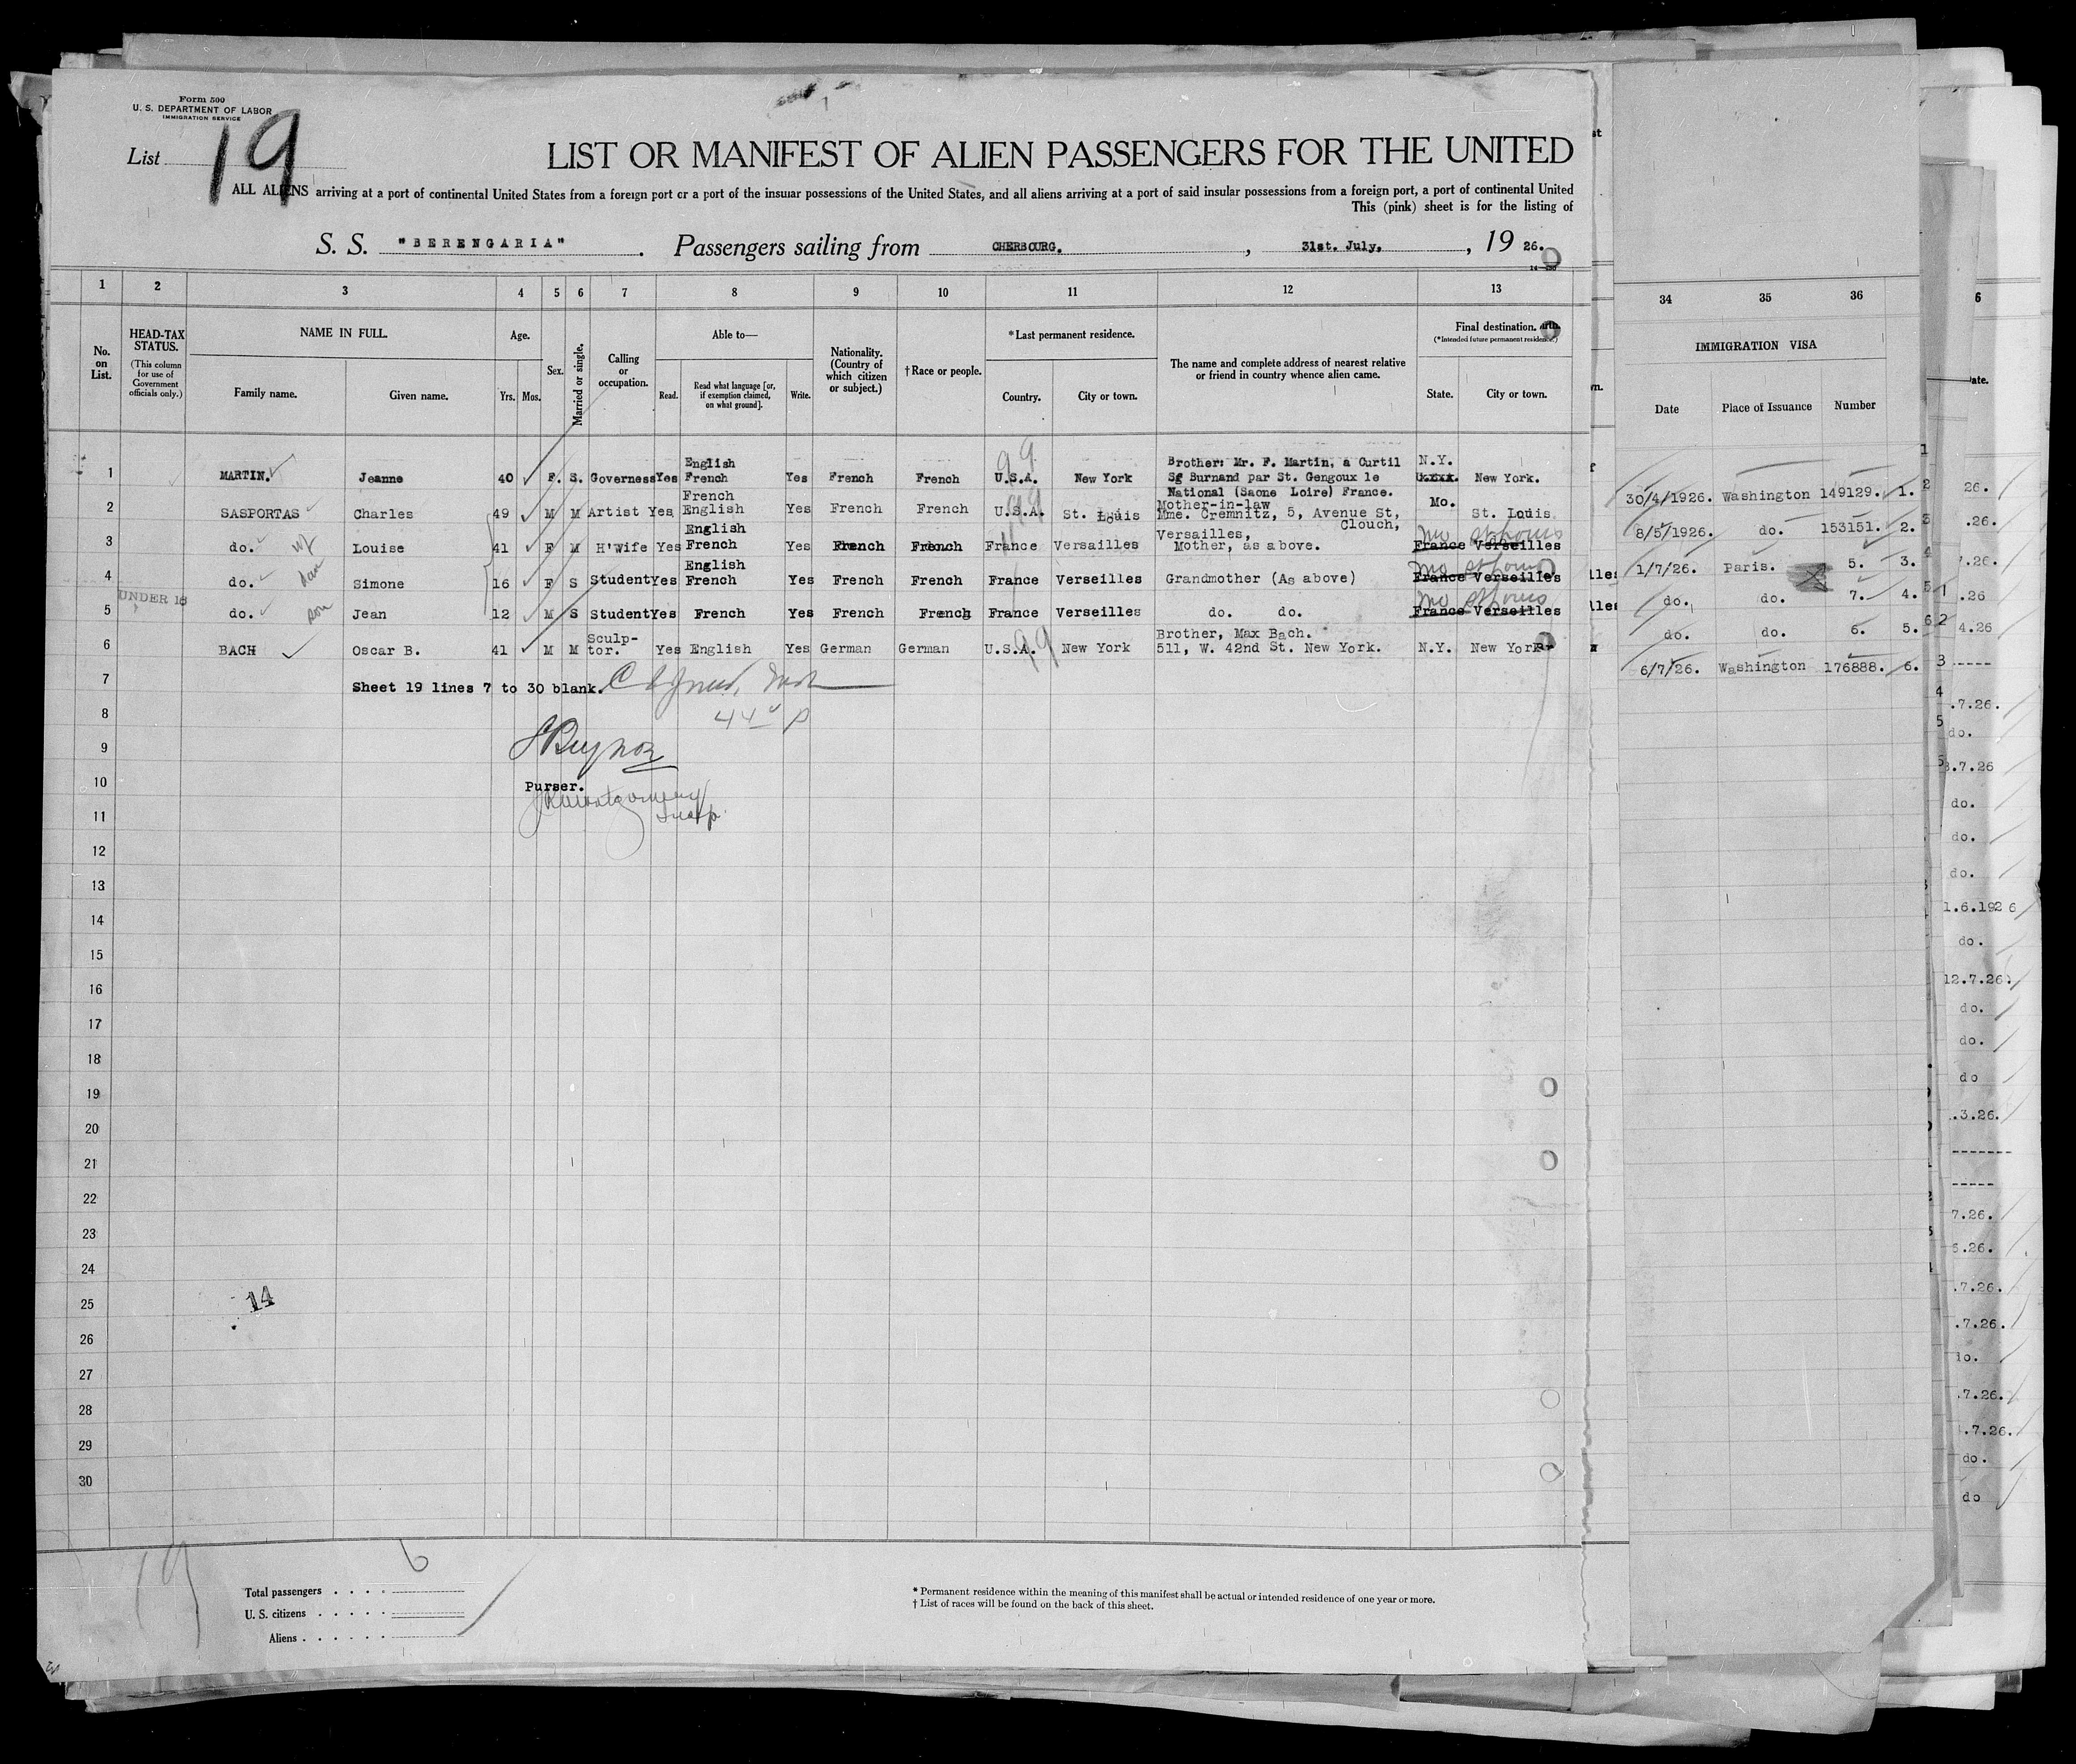 Form 500
U. S. DEPARTMENT OF LABOR
IMMIGRATION SERVICE
List 19
LIST OR MANIFEST OF ALIEN PASSENGERS FOR THE UNITED
ALL ALIENS arriving at a port of continental United States from a foreign port or a port of the insular possessions of the United States, and all aliens arriving at a port of said insular possessions from a foreign port, a port of continental United
This (pink) sheet is for the listing of
S. S. "BERENGARIA". Passengers sailing from CHERBOURG. , 31st. July, , 19 26.
1 2 3 4 5 6 7 8 9 10 11 12 13 34 35 36
No. on List.
HEAD-TAX STATUS.
(This column for use of Government officials only.)
NAME IN FULL.
Family name. Given name.
Age.
Yrs. Mos.
Sex.
Married or single.
Calling or occupation.
Able to—
Read. Read what language [or, if exemption claimed, on what ground]. Write.
Nationality. (Country of which citizen or subject.)
† Race or people.
* Last permanent residence.
Country. City or town.
The name and complete address of nearest relative or friend in country whence alien came.
Final destination.
(*Intended future permanent residence.)
State. City or town.
IMMIGRATION VISA
Date Place of Issuance Number
1 MARTIN. Jeanne 40 F. S. Governess Yes English French Yes French French U.S.A. New York Brother: Mr. F. Martin, a Curtil Sg Burnand par St. Gengoux le National (Saone Loire) France. N.Y. New York. 30/4/1926. Washington 149129. 1.
2 SASPORTAS Charles 49 M M Artist Yes French English Yes French French U.S.A. St. Louis Mother-in-law Mme. Cremnitz, 5, Avenue St, Clouch, Versailles, Mo. St. Louis 8/5/1926. do. 153151. 2.
3 do. wf Louise 41 F M H'Wife Yes English French Yes French French France Versailles Mother, as above. France Verseilles Mo St Louis 1/7/26. Paris. 5. 3.
4 do. dau Simone 16 F S Student Yes English French Yes French French France Verseilles Grandmother (As above) France Verseilles Mo St Louis do. do. 7. 4.
UNDER 16
5 do. son Jean 12 M S Student Yes French Yes French French France Verseilles do. do. France Verseilles Mo St Louis do. do. 6. 5.
6 BACH Oscar B. 41 M M Sculp-tor. Yes English Yes German German U.S.A. New York Brother, Max Bach. 511, W. 42nd St. New York. N.Y. New York 6/7/26. Washington 176888. 6.
7 Sheet 19 lines 7 to 30 blank.
8 44 P
9
10 Purser.
11
12
13
14
15
16
17
18
19
20
21
22
23
24
25 14
26
27
28
29
30
19
6
Total passengers
U. S. citizens
Aliens
* Permanent residence within the meaning of this manifest shall be actual or intended residence of one year or more.
† List of races will be found on the back of this sheet.